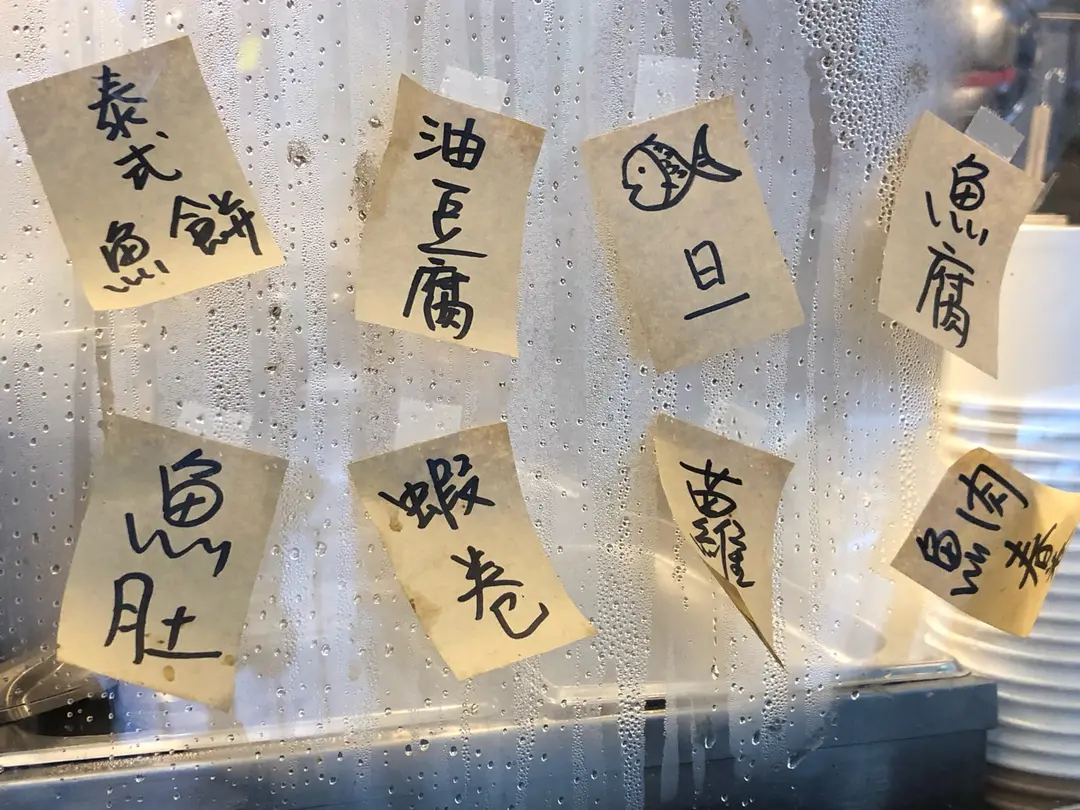 泰式魚餅
油豆腐
旦
魚腐
魚肚
蝦卷
蘿
魚肉春